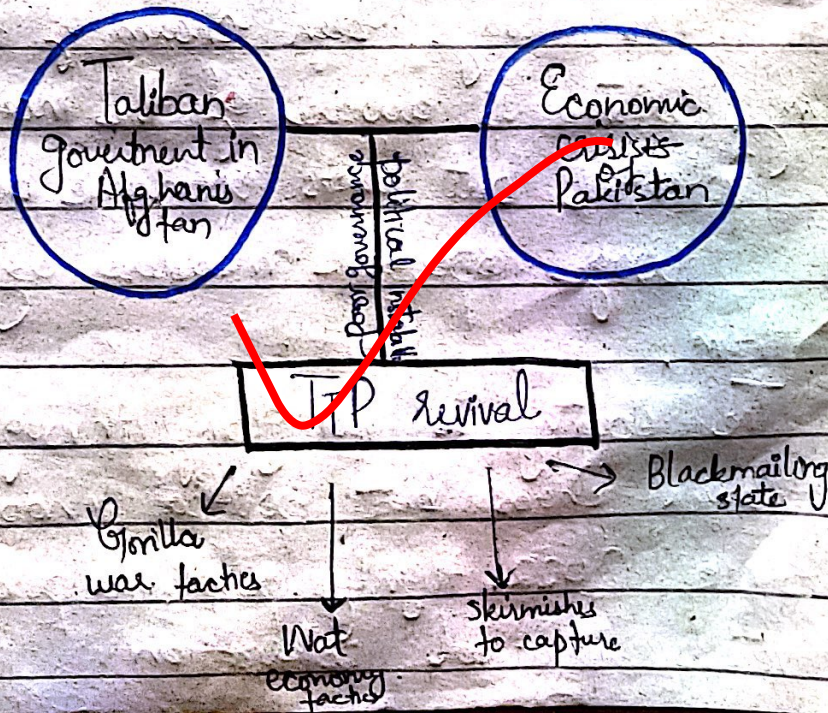 Taliban
government in
Afghanis
tan
Economic
crisis
of
Pakistan
poor governance
political instabili
TTP revival
Gorilla
war tactics
Wat
economy
tactics
skirmishes
to capture
Blackmailing
state